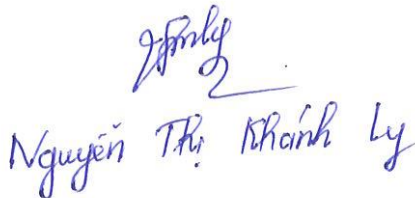 Nguyễn Thị Khánh Ly